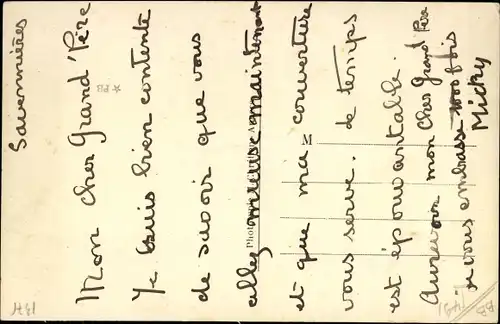 Savennières
Mon cher Grand'Père
Je suis bien contente
de savoir que vous
allez mieux maintenant
et que ma couverture
vous serve. Le temps
est épouvantable.
Aurevoir mon cher Grand Père
je vous embrasse 1000 fois
Micky
M